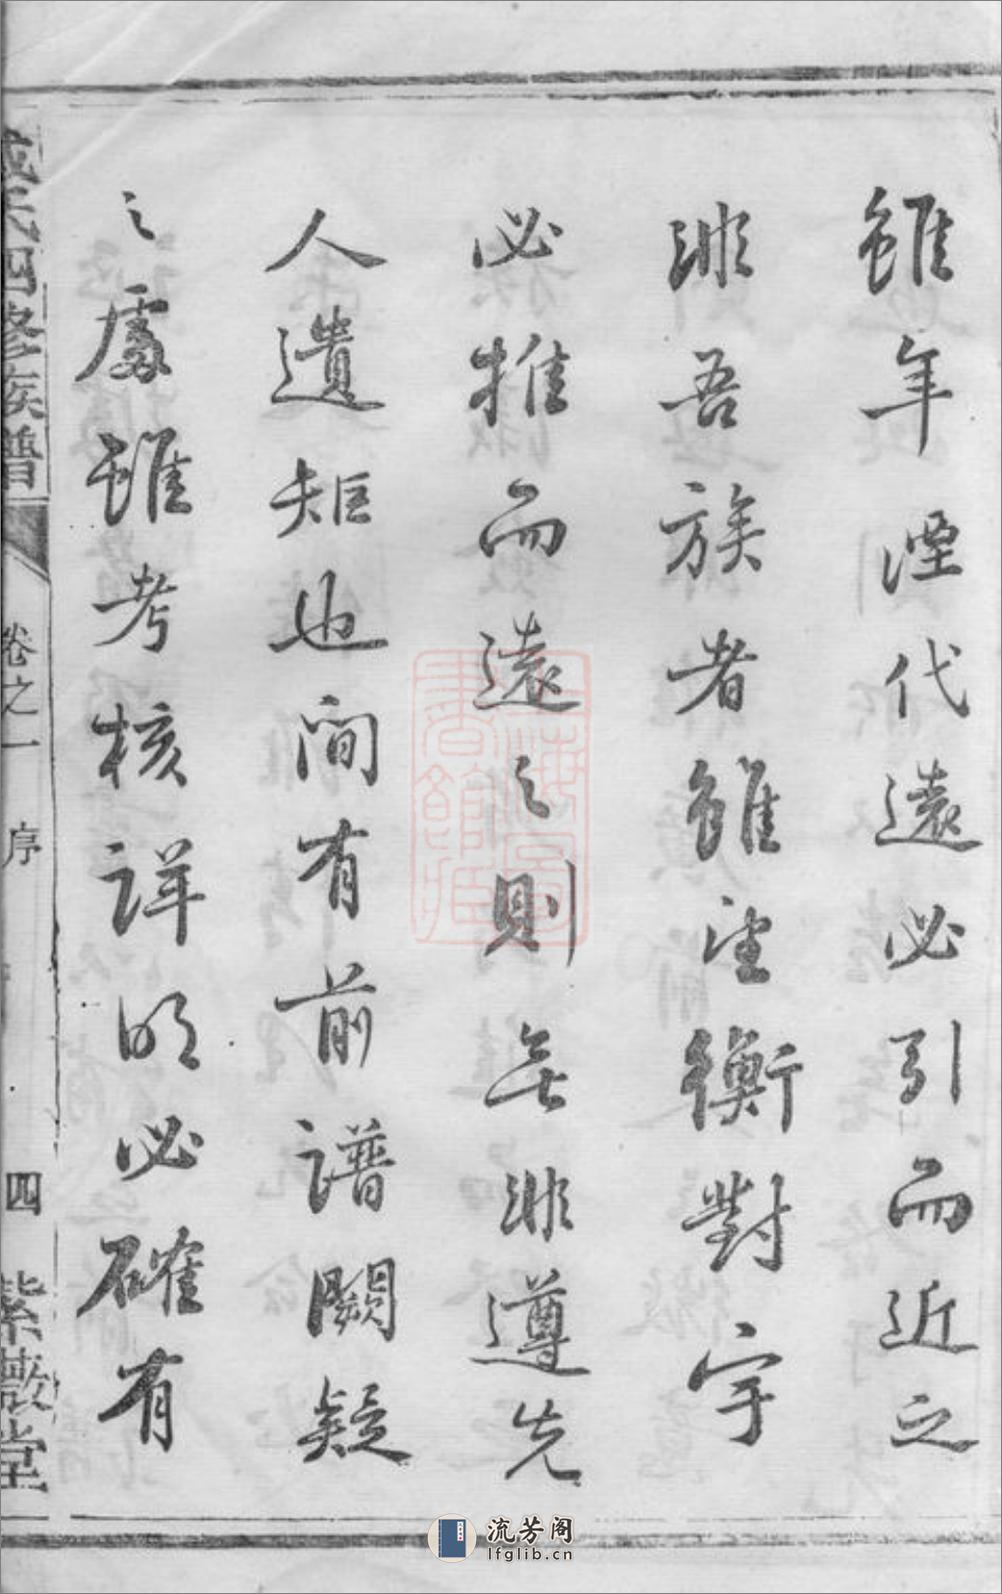 雖年湮代遠必引而近之
非吾族者雖望衡對宇
必推而遠之則無非遵先
人遺矩也間有前譜闕疑
之處雖考核詳明必確有
氏四修族譜
卷之一 序
四 紫薇堂
流芳阁
lfglib.cn